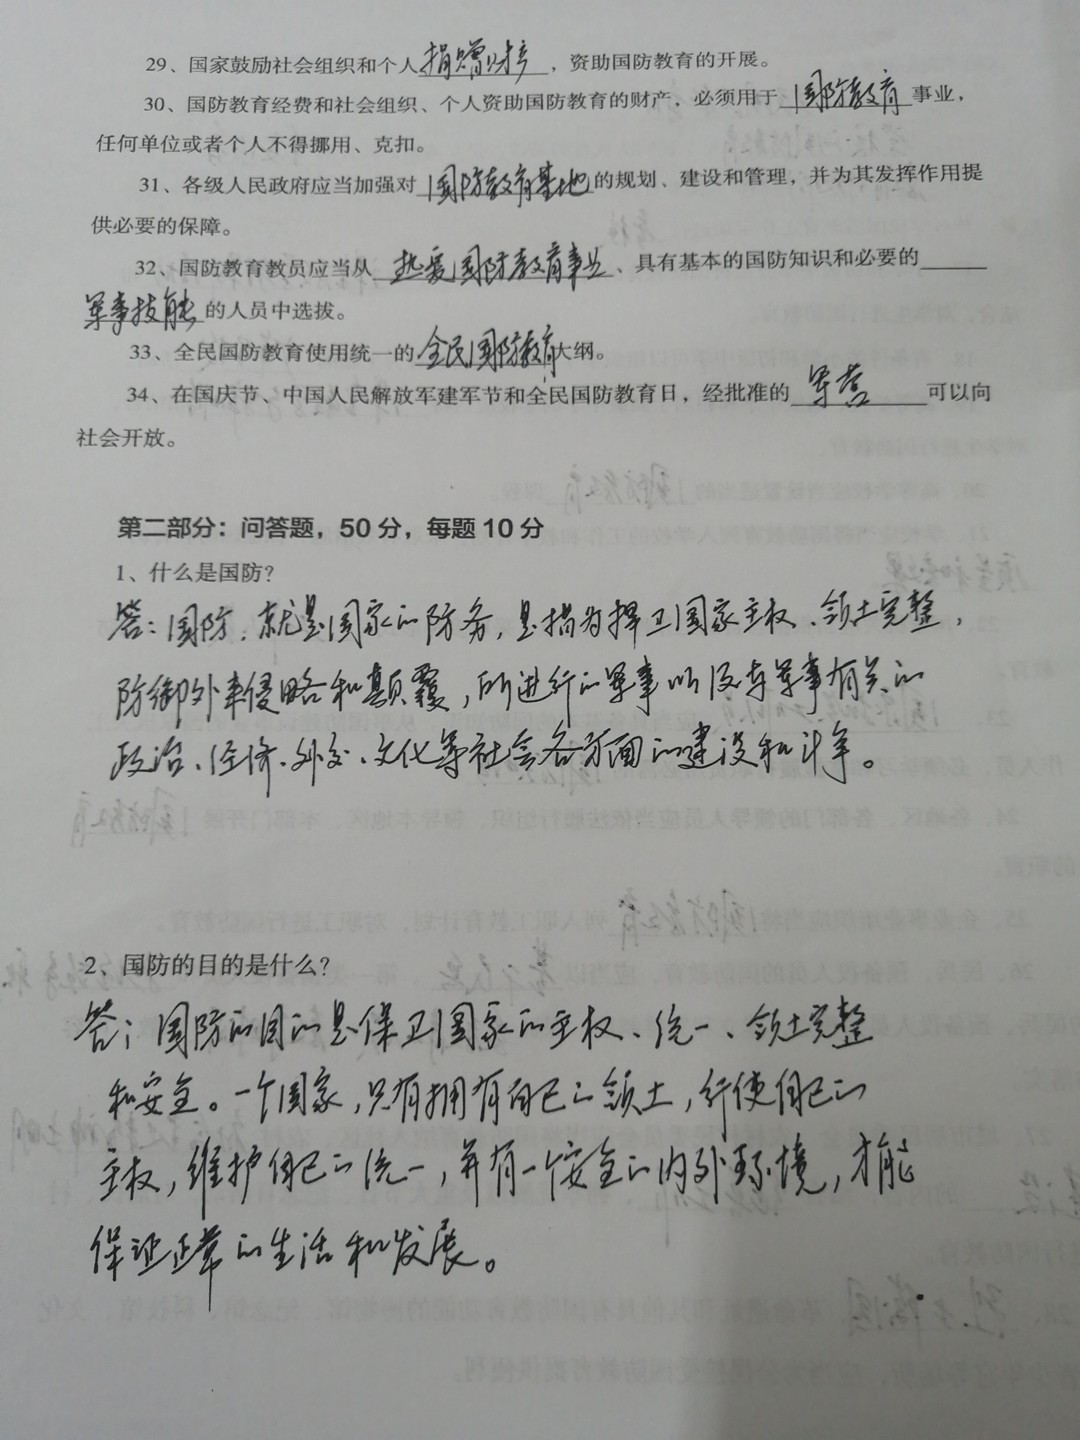 29、国家鼓励社会组织和个人捐赠财产，资助国防教育的开展。
30、国防教育经费和社会组织、个人资助国防教育的财产，必须用于国防教育事业，
任何单位或者个人不得挪用、克扣。
31、各级人民政府应当加强对国防教育基地的规划、建设和管理，并为其发挥作用提
供必要的保障。
32、国防教育教员应当从热爱国防教育事业、具有基本的国防知识和必要的
军事技能的人员中选拔。
33、全民国防教育使用统一的全民国防教育大纲。
34、在国庆节、中国人民解放军建军节和全民国防教育日，经批准的军营可以向
社会开放。
第二部分：问答题，50分，每题10分
1、什么是国防？
答：国防，就是国家的防务，是指为捍卫国家主权、领土完整，
防御外来侵略和颠覆，所进行的军事以及与军事有关的
政治、经济、外交、文化等社会各方面的建设和斗争。
2、国防的目的是什么？
答：国防的目的是保卫国家的主权、统一、领土完整
和安全。一个国家，只有拥有自己的领土，行使自己的
主权，维护自己的统一，并有一个安全的内外环境，才能
保证正常的生活和发展。